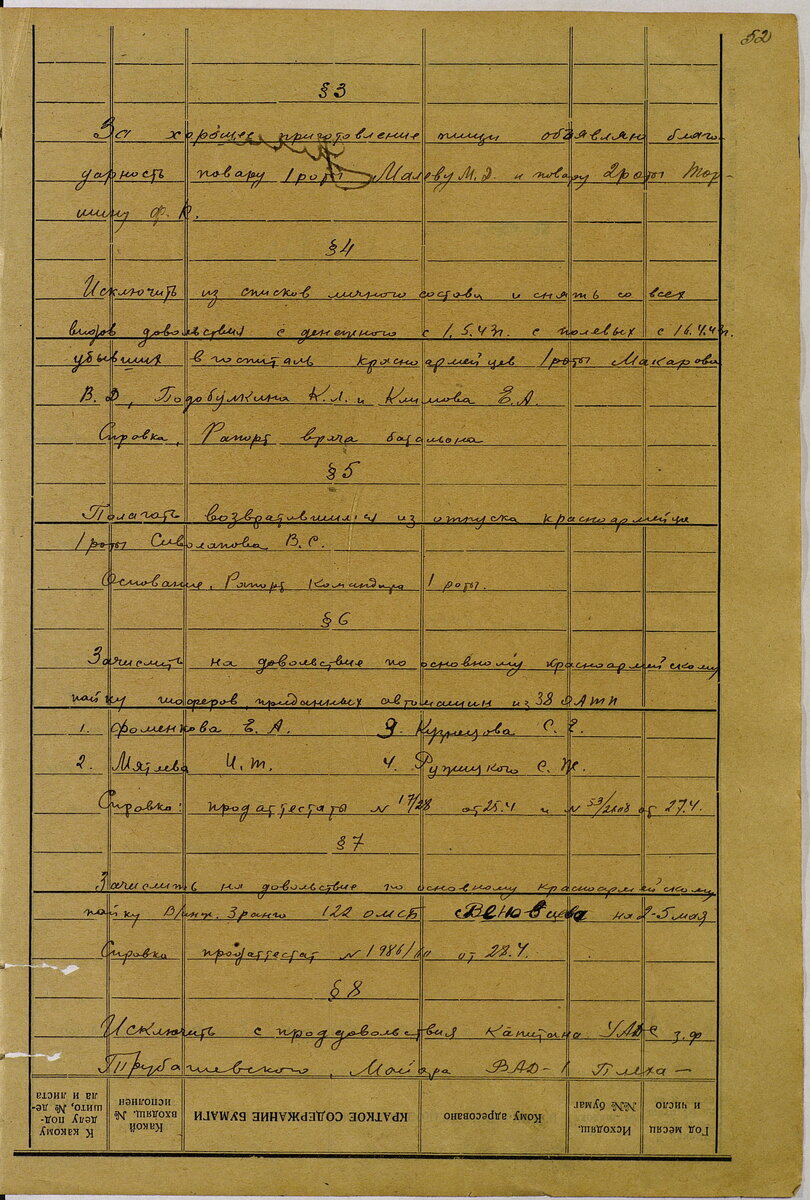 52
§3
За хорошее приготовление пищи объявляю благо-
дарность повару 1 роты Малеву М.Д. и повару 2 роты Тор-
шину Ф. К.
§4
Исключить из списков личного состава и снять со всех
видов довольствия с денежного с 1.5.43г. с полевых с 16.4.43г.
убывших в госпиталь красноармейцев 1 роты Макарова
В. Д, Подобулкина К.Л. и Климова Е.А.
Справка. Рапорт врача батальона
§5
Полагать возвратившимся из отпуска красноармейца
1 роты Сиволапова В.С.
Основание. Рапорт Командира 1 роты.
§6
Зачислить на довольствие по основному красноармейскому
пайку шоферов, приданных автомашин из 38 ОАТП
1. Фоменкова Е. А. 3. Кузнецова С. Е.
2. Мятлева И. Т. 4. Ружицкого С. Ж.
Справка: продаттестаты N 17/28 от 25.4 и N от 27.4.
§7
Зачислить на довольствие по основному красноармейскому
пайку В/инж. 3 ранга 122 ОМСБ на 2-5 мая
Справка продаттестат N 1986/ от 28.4.
§8
Исключить с проддовольствия Капитана УАДС з.ф
Трубашевского, Майора ВАД-1 Плеха-
К какому делу под-шито, № де-ла и листа
Какой входящ. № исполнен
КРАТКОЕ СОДЕРЖАНИЕ БУМАГИ
Кому адресовано
Исходящ. №№ бумаг
Год месяц и число